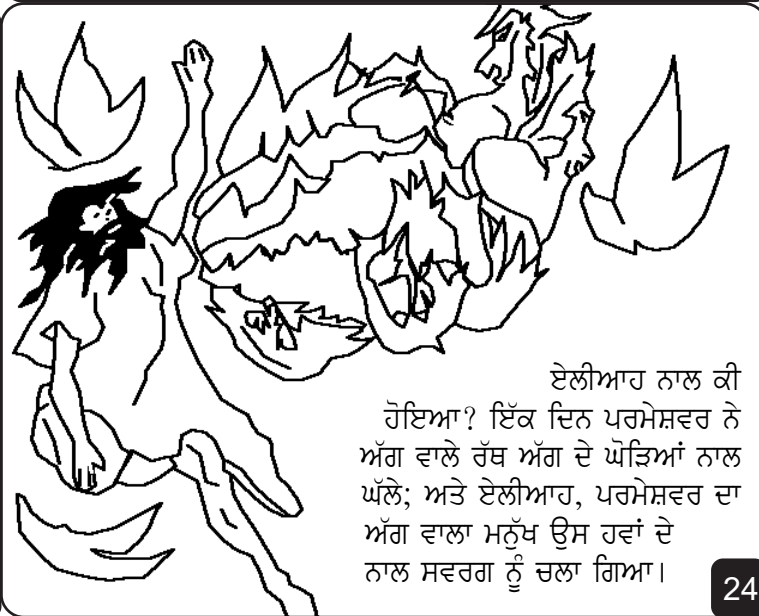 ਏਲੀਆਹ ਨਾਲ ਕੀ
ਹੋਇਆ? ਇੱਕ ਦਿਨ ਪਰਮੇਸ਼ਵਰ ਨੇ
ਅੱਗ ਵਾਲੇ ਰੱਥ ਅੱਗ ਦੇ ਘੋੜਿਆਂ ਨਾਲ
ਘੱਲੇ; ਅਤੇ ਏਲੀਆਹ, ਪਰਮੇਸ਼ਵਰ ਦਾ
ਅੱਗ ਵਾਲਾ ਮਨੁੱਖ ਉਸ ਹਵਾਂ ਦੇ
ਨਾਲ ਸਵਰਗ ਨੂੰ ਚਲਾ ਗਿਆ।
24